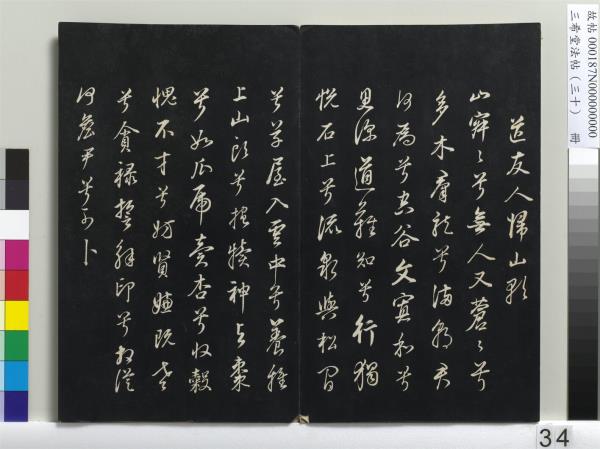 故帖 000187N000000000
三希堂法帖（三十） 冊
送友人歸山歌
山寂々兮無人又蒼々兮
多木群龍兮滿朝君
何為兮空谷文寡和兮
思深道難知兮行獨
悅石上兮流泉與松間
兮草屋入雲中兮養雞
上山頭兮抱犢神與棗
兮如瓜虎賣杏兮收穀
愧不才兮妨賢嫌既老
兮貪祿誓解印兮相從
何詹尹兮可卜
34